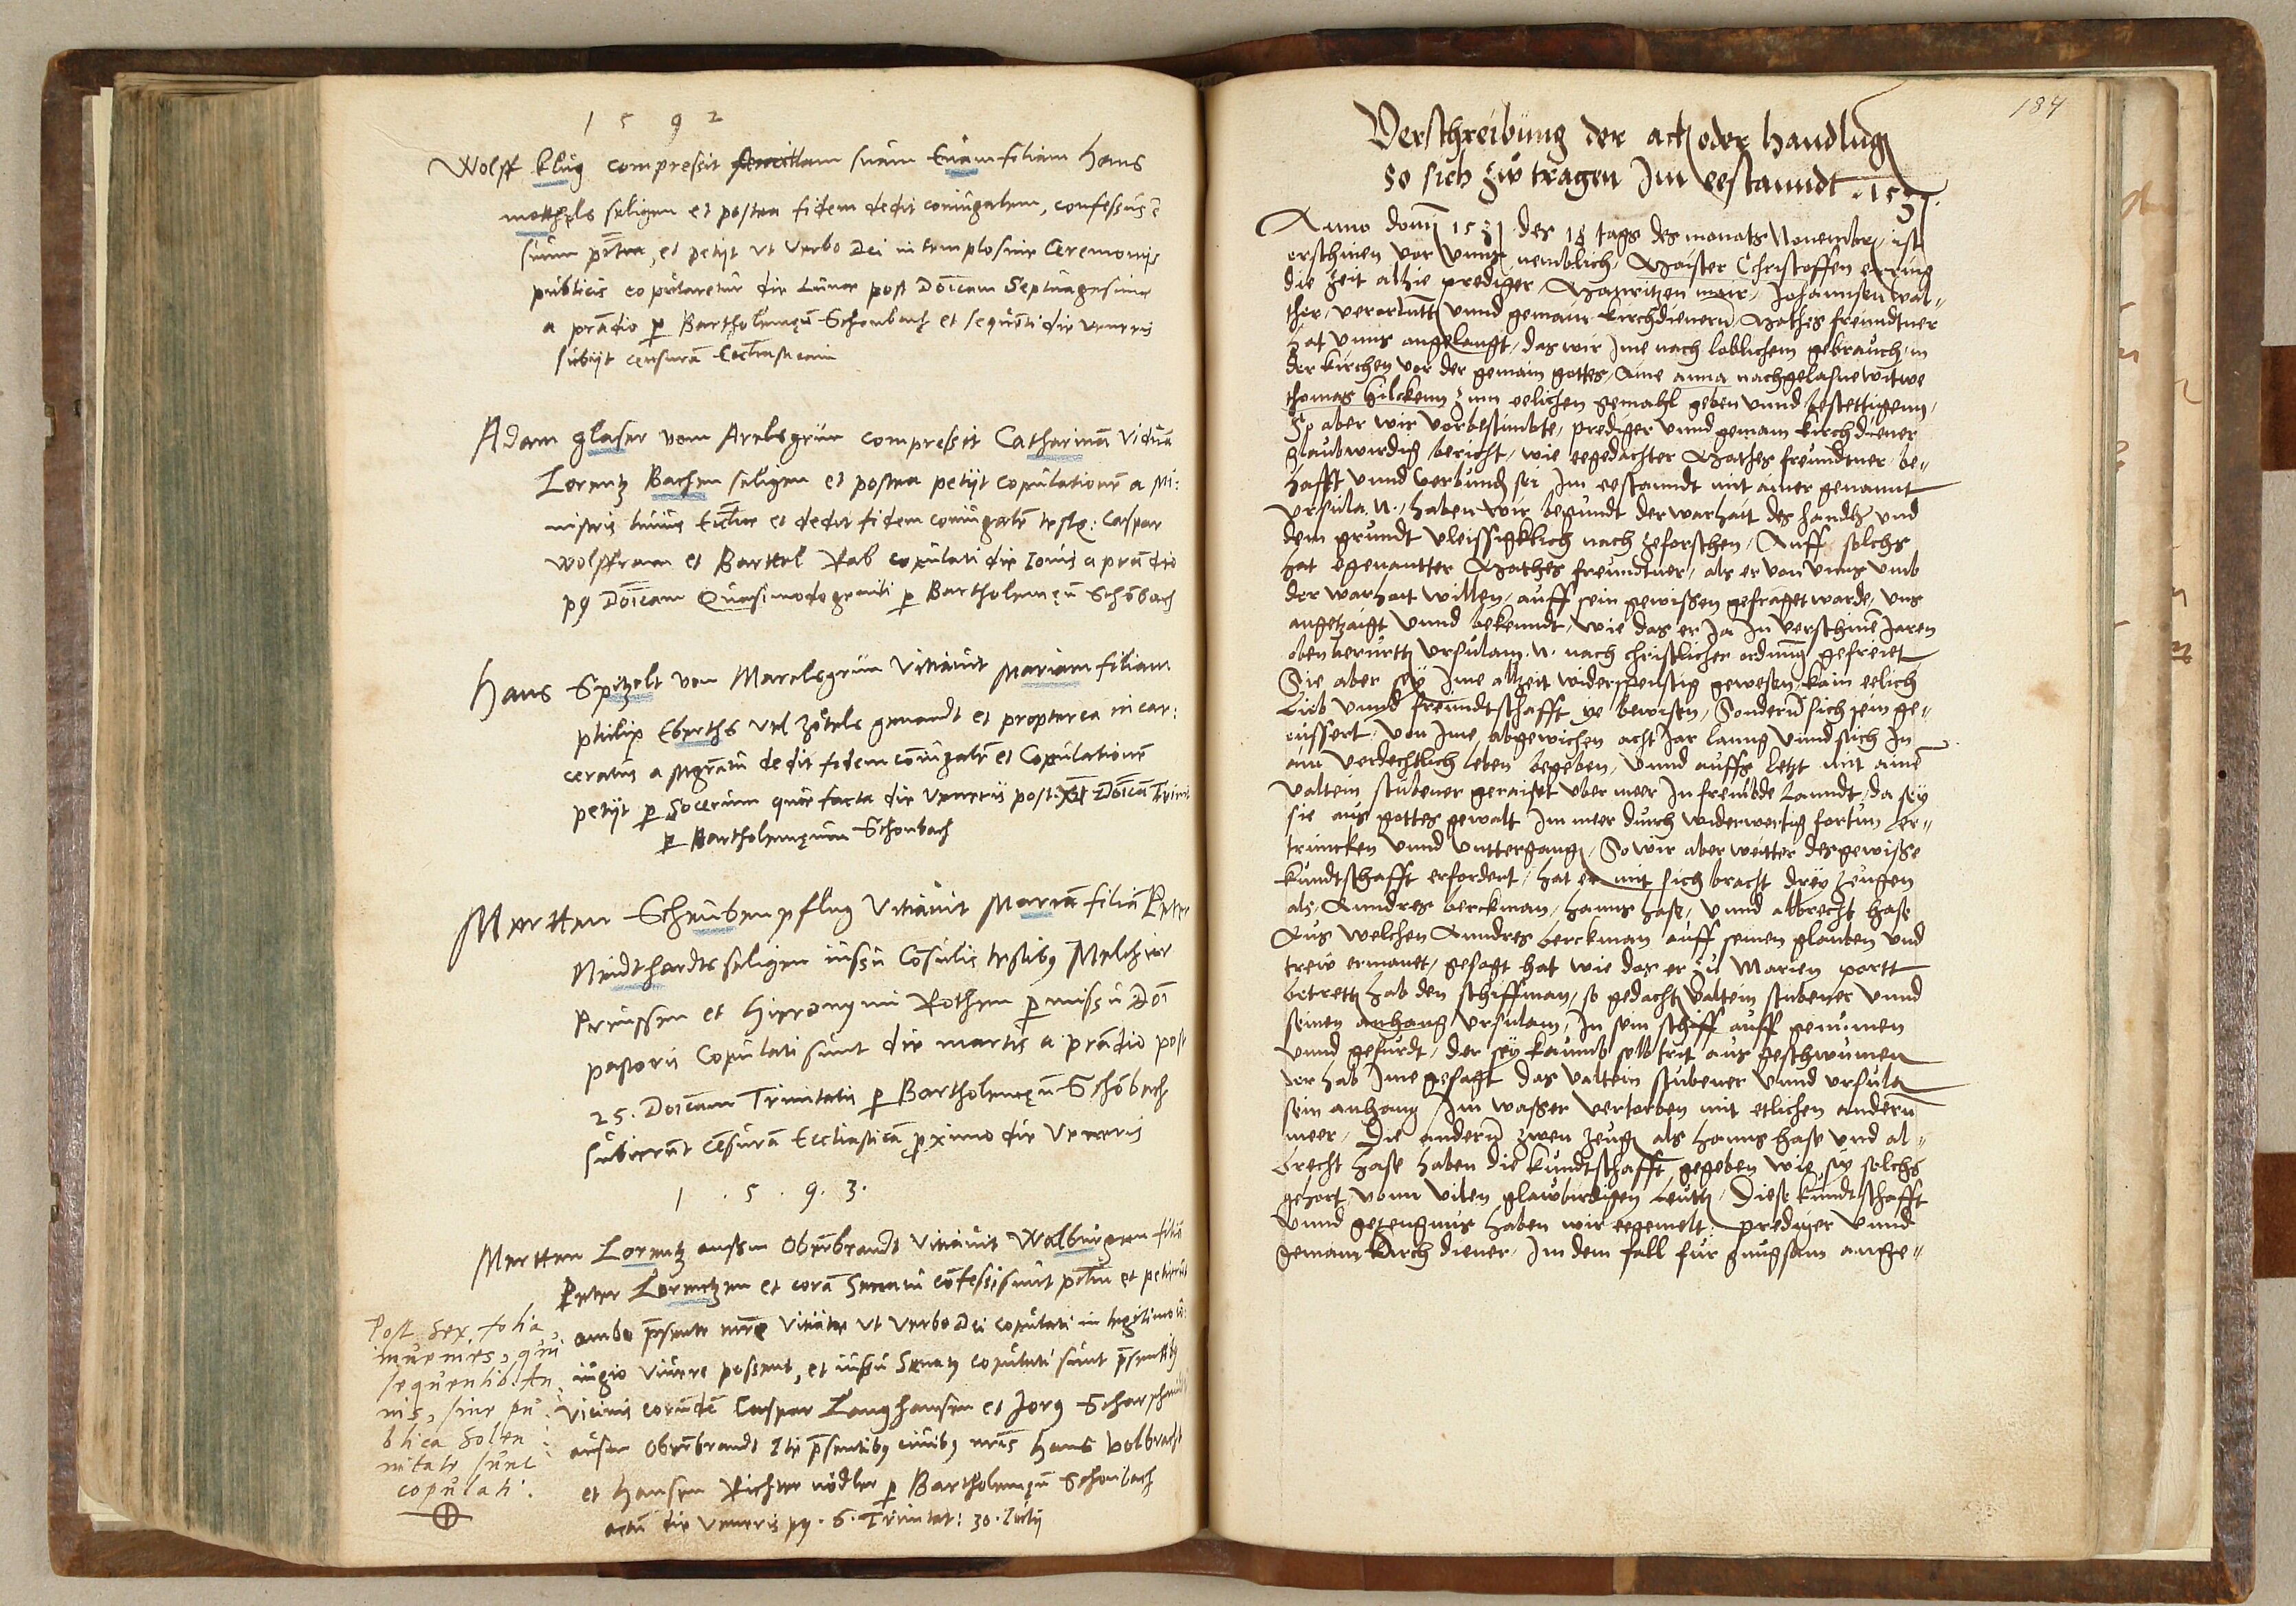 1592
Wolff klug compressit famulam suam Evam filiam Hans
seligen et postea fidem dedit coniugalem, confessus ē
suum et petijt ut verbo Dei in templo sine Ceremonijs
publicis copularetur die Lunae post Doīcam Septuagesimae
a prandio p Bartholemęū Schonbach et sequēti die Veneris
subijt censurā Ecclīasticam
Adam glaser vom Arelsgrün compressit Catharinā viduā
Lorentz Bachen seligen et postea petijt copulationē a Mi:
nistris huius Ecclīae et dedit fidem coniugalē testib: Caspar
Wolffram et Barttel Rab copulati die Iovis a prandio
p9 Doīcam Quasimodogeniti p Bartholemęū Schōbach
Hans Spitzelt von Marelsgrün vitiavit Mariam filiam
philip Eberths vel Zötels genandt et propterea incar:
ceratus a mgrātu dedit fidem coniugalē et Copulationē
petijt p Socerum quae facta die Veneris post Doīcā Trinit
p Bartholemęum Schonbach
Mertten Scheubenpflug vitiavit Mariā filiā Peter
Neidthardts seligen iussu Cōsulis testibus Melchior
Preussen et Hieronymi Rothen p missū Doī
pastoris Copulati sunt die martis a prādio post
25. Doīcam Trinitatis p Bartholemęū Schōbach
subierunt cēsurā Eccliasticā proximo die Veneris
1.5.9.3.
Mertten Lorentz ausm Obernbrandt vitiavit Walburgam filiā
Peter Lorentzen et corā Senatu confessi sunt pctm et petierūt
ambo p̄sente mr̄e vitiatae ut verbo Dei copulati in legitimo cō
iugio vivere possent, et iussu Senatus copulati sunt p̄sentibus
vicinis eorundē Caspar Langhansen et Jorg
ausm Obernbrandt Itē p̄sentibus civibus nr̄is Hans Volbracht
et Hansen Richter nödler p Bartholemęū Schonbach
actū die Veneris p9. 6. Trinitat: 30. Julij
Post sex folia
invenies, qui
sequentib. An
nis, sine pu
blica Solen
nitate sunt
copulati.
184
Verschreibung der act oder handlug
so sich zů tragen Im eestanndt .1531.
Anno domī 1531 des 18 tags des monats Novembr, ist
erschinen vor unns nemblich, Maister Christoffen ering
die zeit alhie prediger, Mauritzen mair, Johannsen wal-
ther, verordnett unnd gemain kirchdienern, Mathes freundtner
hat unns angelangt, das wir Ime nach loblichem gebrauch, in
der kirchen vor der gemain gottes, Aine anna nachgelasne witwe
thomas hilckenn zum eelichen gemahl geben unnd bestettigenn,
So aber wir vorbestimbte, prediger unnd gemain kirchdiener
glaubwirdig bericht, wie eegedachter Mathes freundtner, be-
hafft unnd verbundē sei Im eestanndt mit ainer genannt
Ursula. N., haben wir begundt der warhait des handls und
dem grundt vleissigklich nach zeforschen, Auff solchs
hat egenantter Mathes freundtner, als er von unns umb
der warhait willen, auff sein gewissen gefraget warde, uns
angetzaigt unnd bekenndt, wie das er Ja In verschinē Jaren
obenberürtte Ursulam. N. nach christlicher ordnung gefreiet
Sie aber sey Ime altzeit widerspenstig gewesen, kain eelich
Lieb unnd freundtschafft ye bewisen, Sondern sich sein ge-
eussert, von Ime abgewichen acht Jar lanng unnd sich In
ain verdechtlich leben begeben, unnd auffs letzt mit aine
Valtein stubener geraiset uber meer In frembde Lanndt, da sey
sie aus gottes gewalt Im meer durch widerwertig fortun er-
truncken unnd unttergangē, So wir aber weitter des gewisse
kundtschafft erfordert, hat er mit sich bracht drey zeugen
als, Anndres berckman, hanns hase, unnd albrecht hase
Aus welchen Anndres berckman auff seinen glauben und
trew ermanet, gesagt hat wie das er zu Marien portt
betrettē hab den schiffman, so gedachtē Valtein stubener unnd
seinen anhang Ursulam, In sein schiff auff genumen
unnd gefürdt, der sey kaumb selb trit aus geschwumen
der hab Ime gesagt das Valtein stubener unnd Ursula
sein anhang Im wasser vertorben mit etlichen andern
meer, Die andern zwen zeugē als hanns hase und al-
brecht hase haben die kundtschafft gegeben wie sie solchs
gehort vonn vilen glawbirdigen leuthē, Diese kundtschafft
unnd getzeugnus haben wir eegemelt, prediger unnd
gemain kirch diener, In dem fall für gnugsam ange-